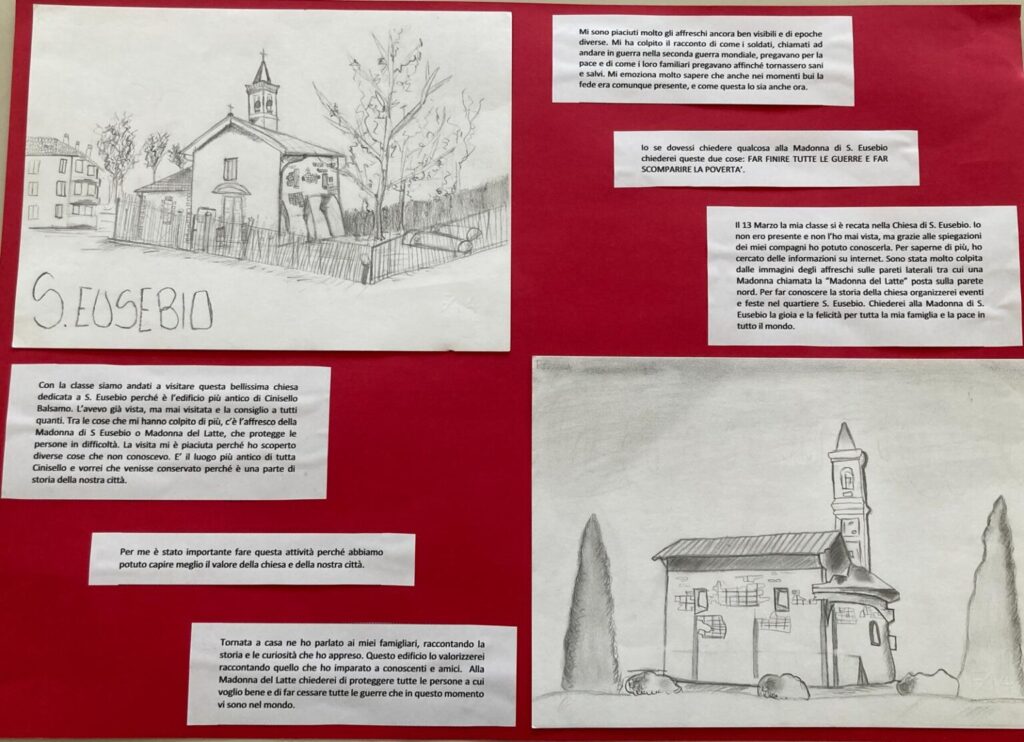 S. EUSEBIO
Con la classe siamo andati a visitare questa bellissima chiesa
dedicata a S. Eusebio perché è l'edificio più antico di Cinisello
Balsamo. L'avevo già vista, ma mai visitata e la consiglio a tutti
quanti. Tra le cose che mi hanno colpito di più, c'è l'affresco della
Madonna di S Eusebio o Madonna del Latte, che protegge le
persone in difficoltà. La visita mi è piaciuta perché ho scoperto
diverse cose che non conoscevo. E' il luogo più antico di tutta
Cinisello e vorrei che venisse conservato perché è una parte di
storia della nostra città.
Per me è stato importante fare questa attività perché abbiamo
potuto capire meglio il valore della chiesa e della nostra città.
Tornata a casa ne ho parlato ai miei famigliari, raccontando la
storia e le curiosità che ho appreso. Questo edificio lo valorizzerei
raccontando quello che ho imparato a conoscenti e amici. Alla
Madonna del Latte chiederei di proteggere tutte le persone a cui
voglio bene e di far cessare tutte le guerre che in questo momento
vi sono nel mondo.
Mi sono piaciuti molto gli affreschi ancora ben visibili e di epoche
diverse. Mi ha colpito il racconto di come i soldati, chiamati ad
andare in guerra nella seconda guerra mondiale, pregavano per la
pace e di come i loro familiari pregavano affinché tornassero sani
e salvi. Mi emoziona molto sapere che anche nei momenti bui la
fede era comunque presente, e come questa lo sia anche ora.
Io se dovessi chiedere qualcosa alla Madonna di S. Eusebio
chiederei queste due cose: FAR FINIRE TUTTE LE GUERRE E FAR
SCOMPARIRE LA POVERTA'.
Il 13 Marzo la mia classe si è recata nella Chiesa di S. Eusebio. Io
non ero presente e non l'ho mai vista, ma grazie alle spiegazioni
dei miei compagni ho potuto conoscerla. Per saperne di più, ho
cercato delle informazioni su internet. Sono stata molto colpita
dalle immagini degli affreschi sulle pareti laterali tra cui una
Madonna chiamata la "Madonna del Latte" posta sulla parete
nord. Per far conoscere la storia della chiesa organizzerei eventi
e feste nel quartiere S. Eusebio. Chiederei alla Madonna di S.
Eusebio la gioia e la felicità per tutta la mia famiglia e la pace in
tutto il mondo.